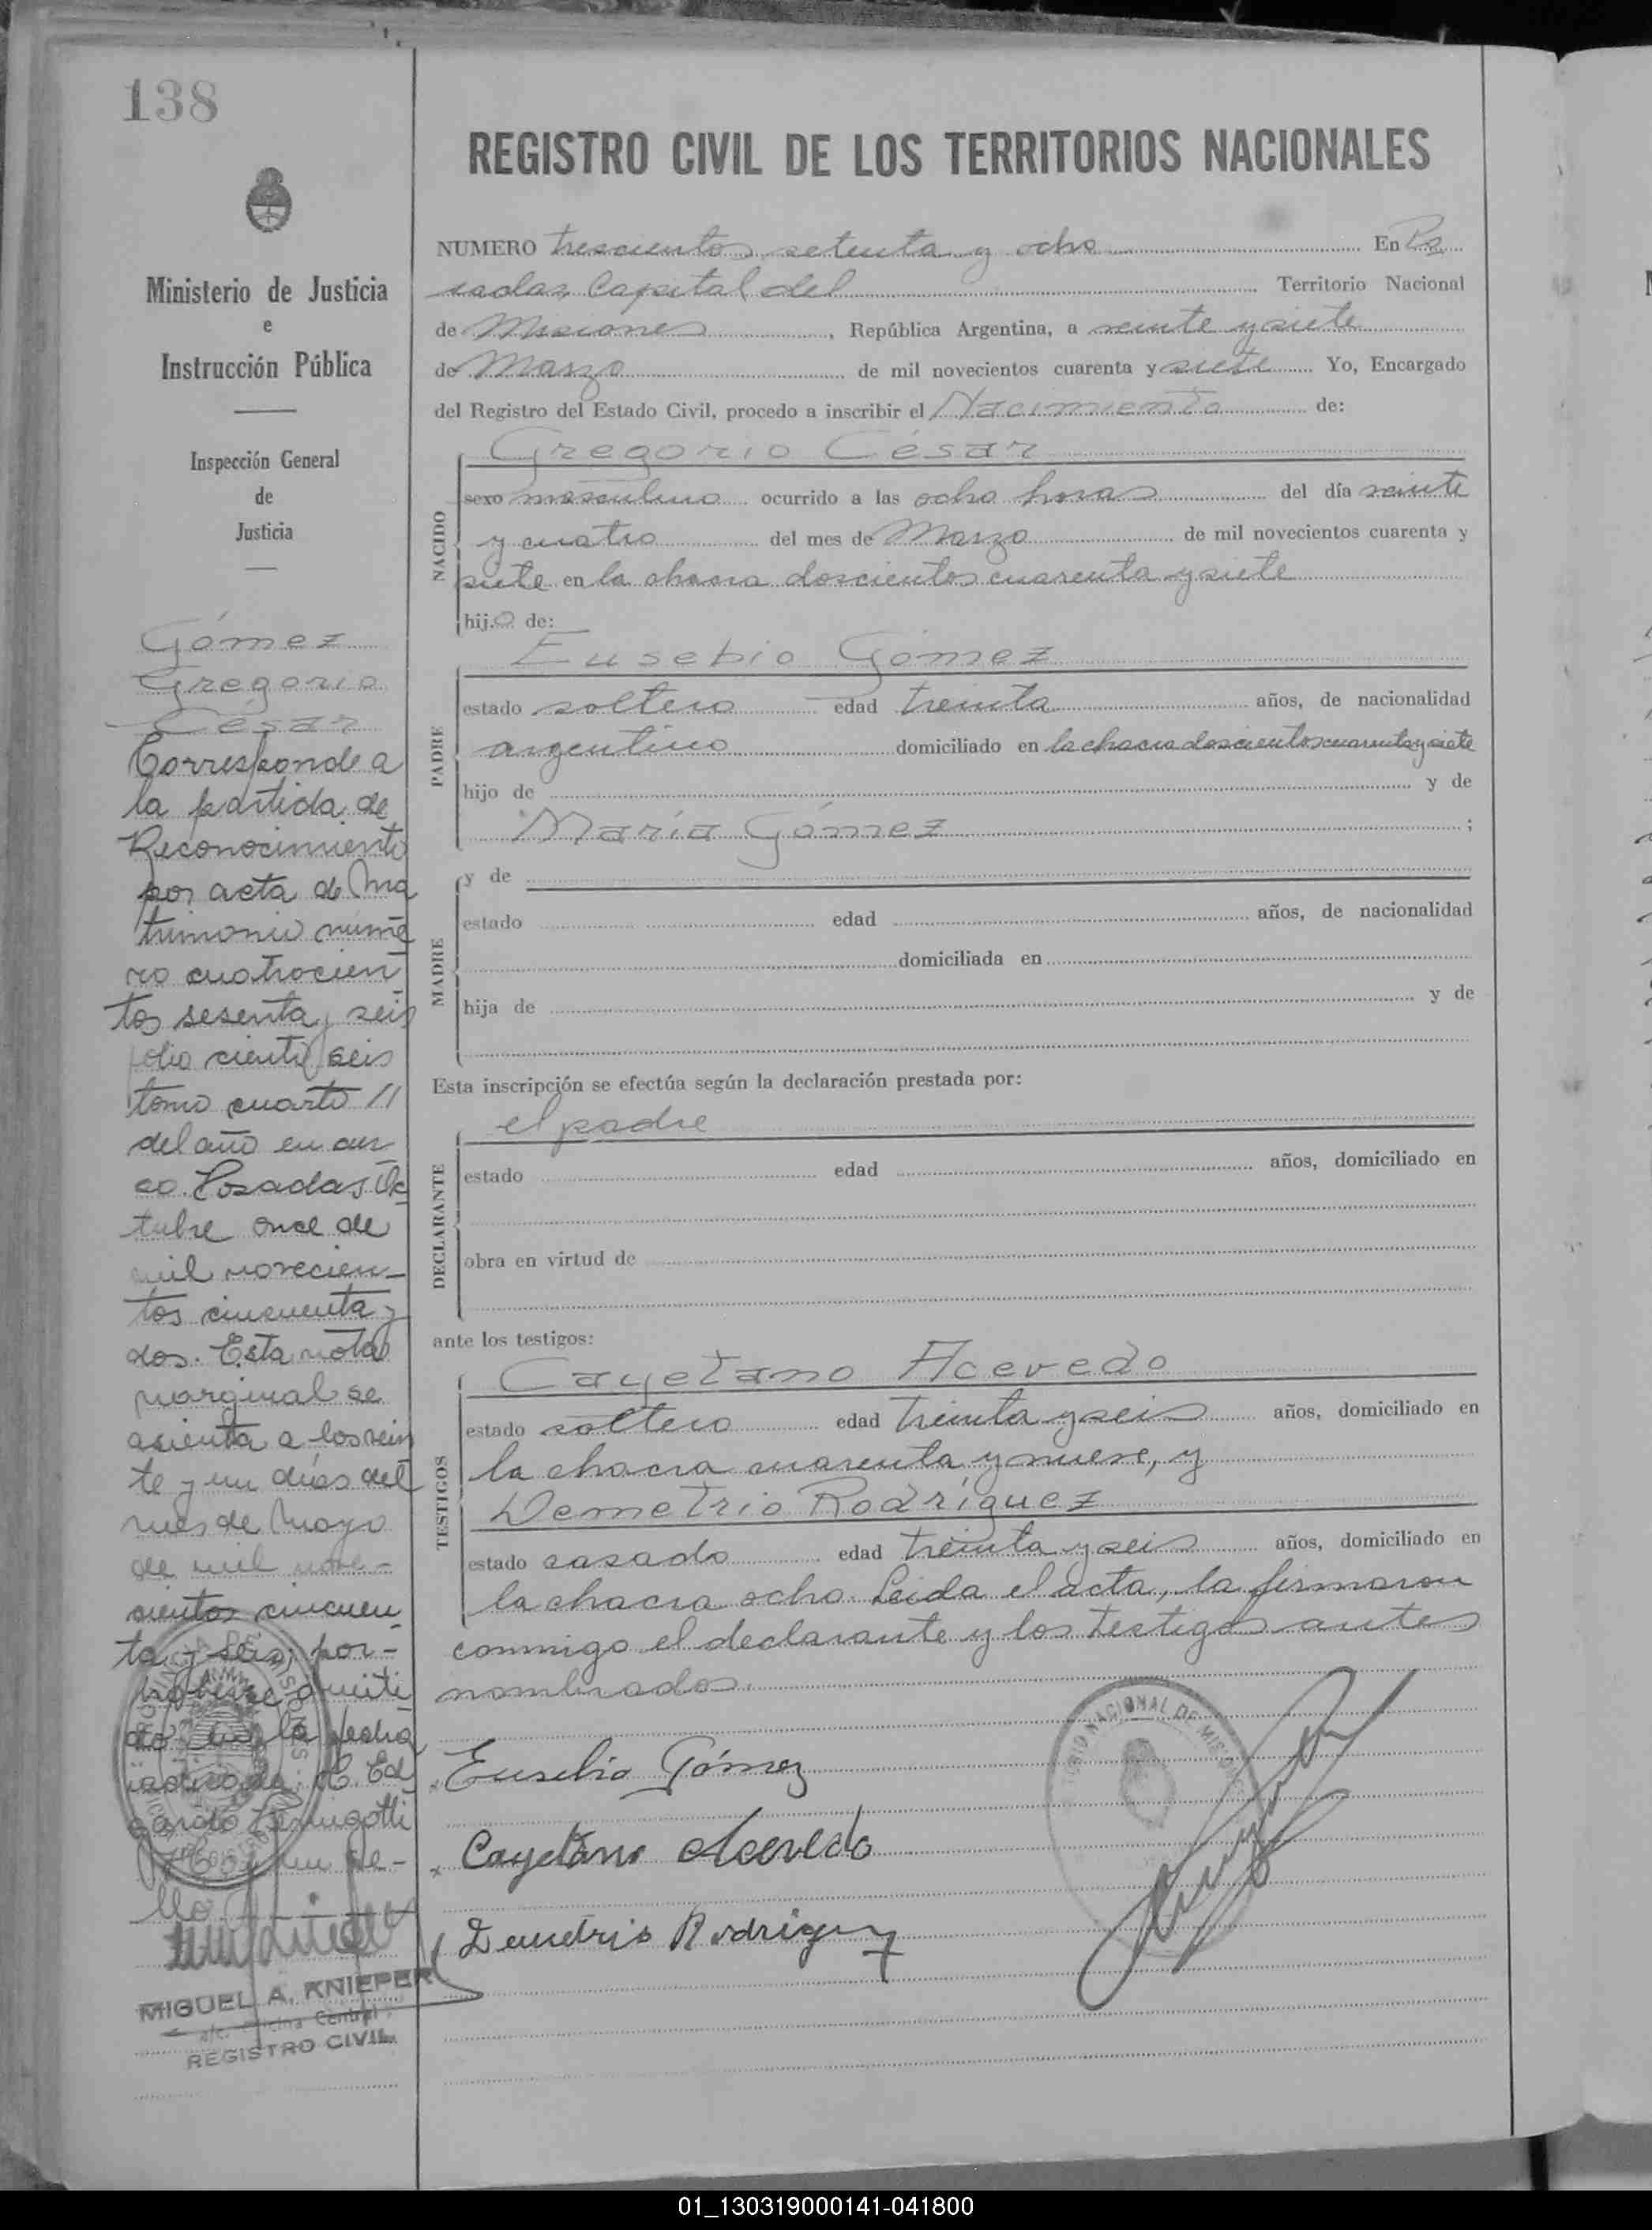 138
REGISTRO CIVIL DE LOS TERRITORIOS NACIONALES
Ministerio de Justicia
e
Instrucción Pública
Inspección General
de
Justicia
Gómez
Gregorio
César
Corresponde a
la partida de
Reconocimiento
por acta de Ma
trimonio núme
ro cuatrocien
tos sesenta y seis
folio ciento seis
tomo cuarto
del año en cur
so. Posadas Oc
tubre once de
mil novecien-
tos cincuenta y
dos. Esta nota
marginal se
asienta a los vein
te y un días del
mes de Mayo
de mil nove-
cientos cincuen
ta y seis, por-
haberse omiti
do en la fecha
indicada. Ed
gardo
Hay un se-
llo
MIGUEL A. KNIEPER
a/c. Oficina Central
REGISTRO CIVIL
NUMERO trescientos setenta y ocho En Po
sadas Capital del Territorio Nacional
de Misiones, República Argentina, a veinte y siete
de Marzo de mil novecientos cuarenta y siete Yo, Encargado
del Registro del Estado Civil, procedo a inscribir el Nacimiento de:
NACIDO
Gregorio César
sexo masculino ocurrido a las ocho horas del día veinte
y cuatro del mes de Marzo de mil novecientos cuarenta y
siete en la chacra doscientos cuarenta y siete
hijo de:
PADRE
Eusebio Gómez
estado soltero edad treinta años, de nacionalidad
argentino domiciliado en la chacra doscientos cuarenta y siete
hijo de y de
María Gómez;
MADRE
y de
estado edad años, de nacionalidad
domiciliada en
hija de y de
Esta inscripción se efectúa según la declaración prestada por:
DECLARANTE
el padre
estado edad años, domiciliado en
obra en virtud de
ante los testigos:
TESTIGOS
Cayetano Acevedo
estado soltero edad treinta y seis años, domiciliado en
la chacra cuarenta y nueve, y
Demetrio Rodríguez
estado casado edad treinta y seis años, domiciliado en
la chacra ocho. Leida el acta, la firmaron
conmigo el declarante y los testigos antes
nombrados.
Eusebio Gómez
Cayetano Acevedo
Demetrio Rodriguez
NACIONAL DE MISIONES
01_130319000141-041800